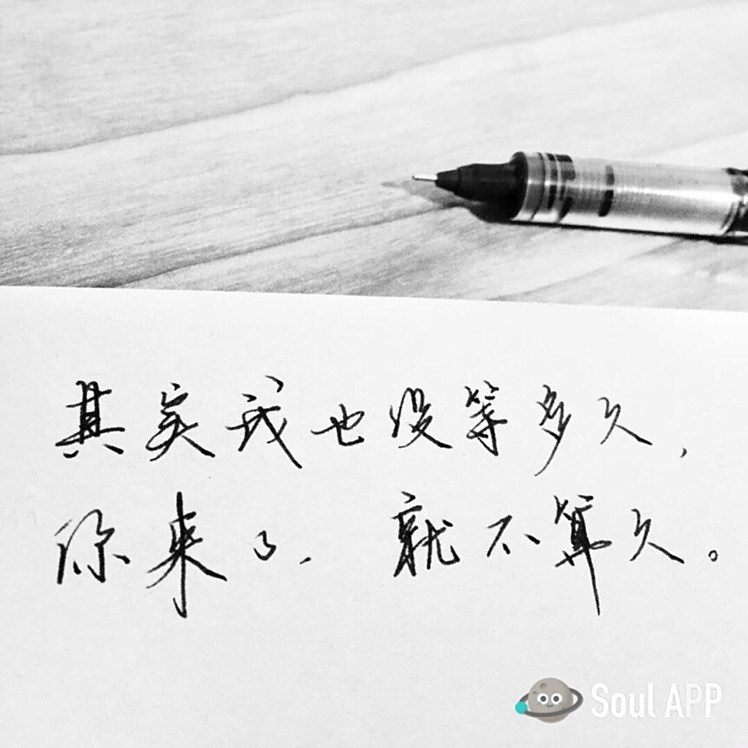 其实我也没等多久,
你来了, 就不算久。
Soul APP